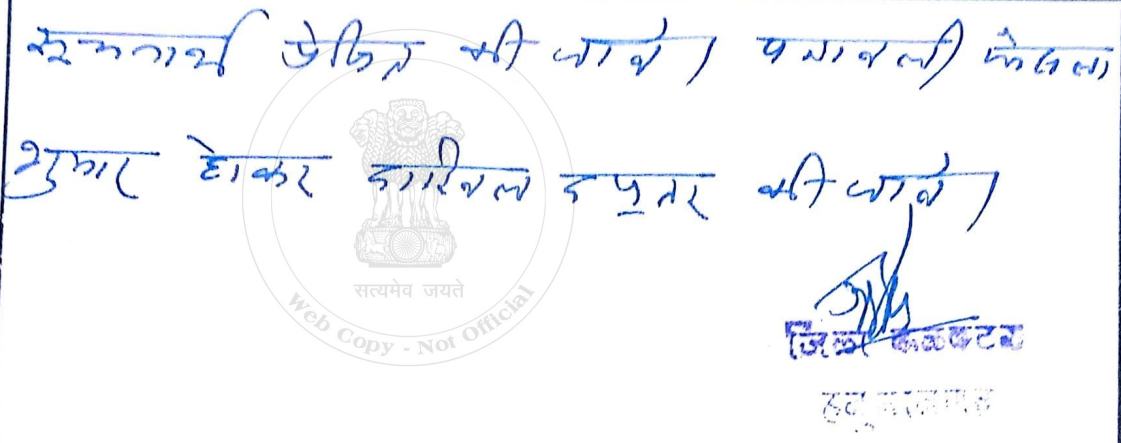 सूचनार्थ प्रेषित की जावे। पत्रावली फैसला
शुमार होकर दाखिल दफ्तर की जावे।
सत्यमेव जयते
Web Copy - Not Official
जिला कलक्टर
हनुमानगढ़